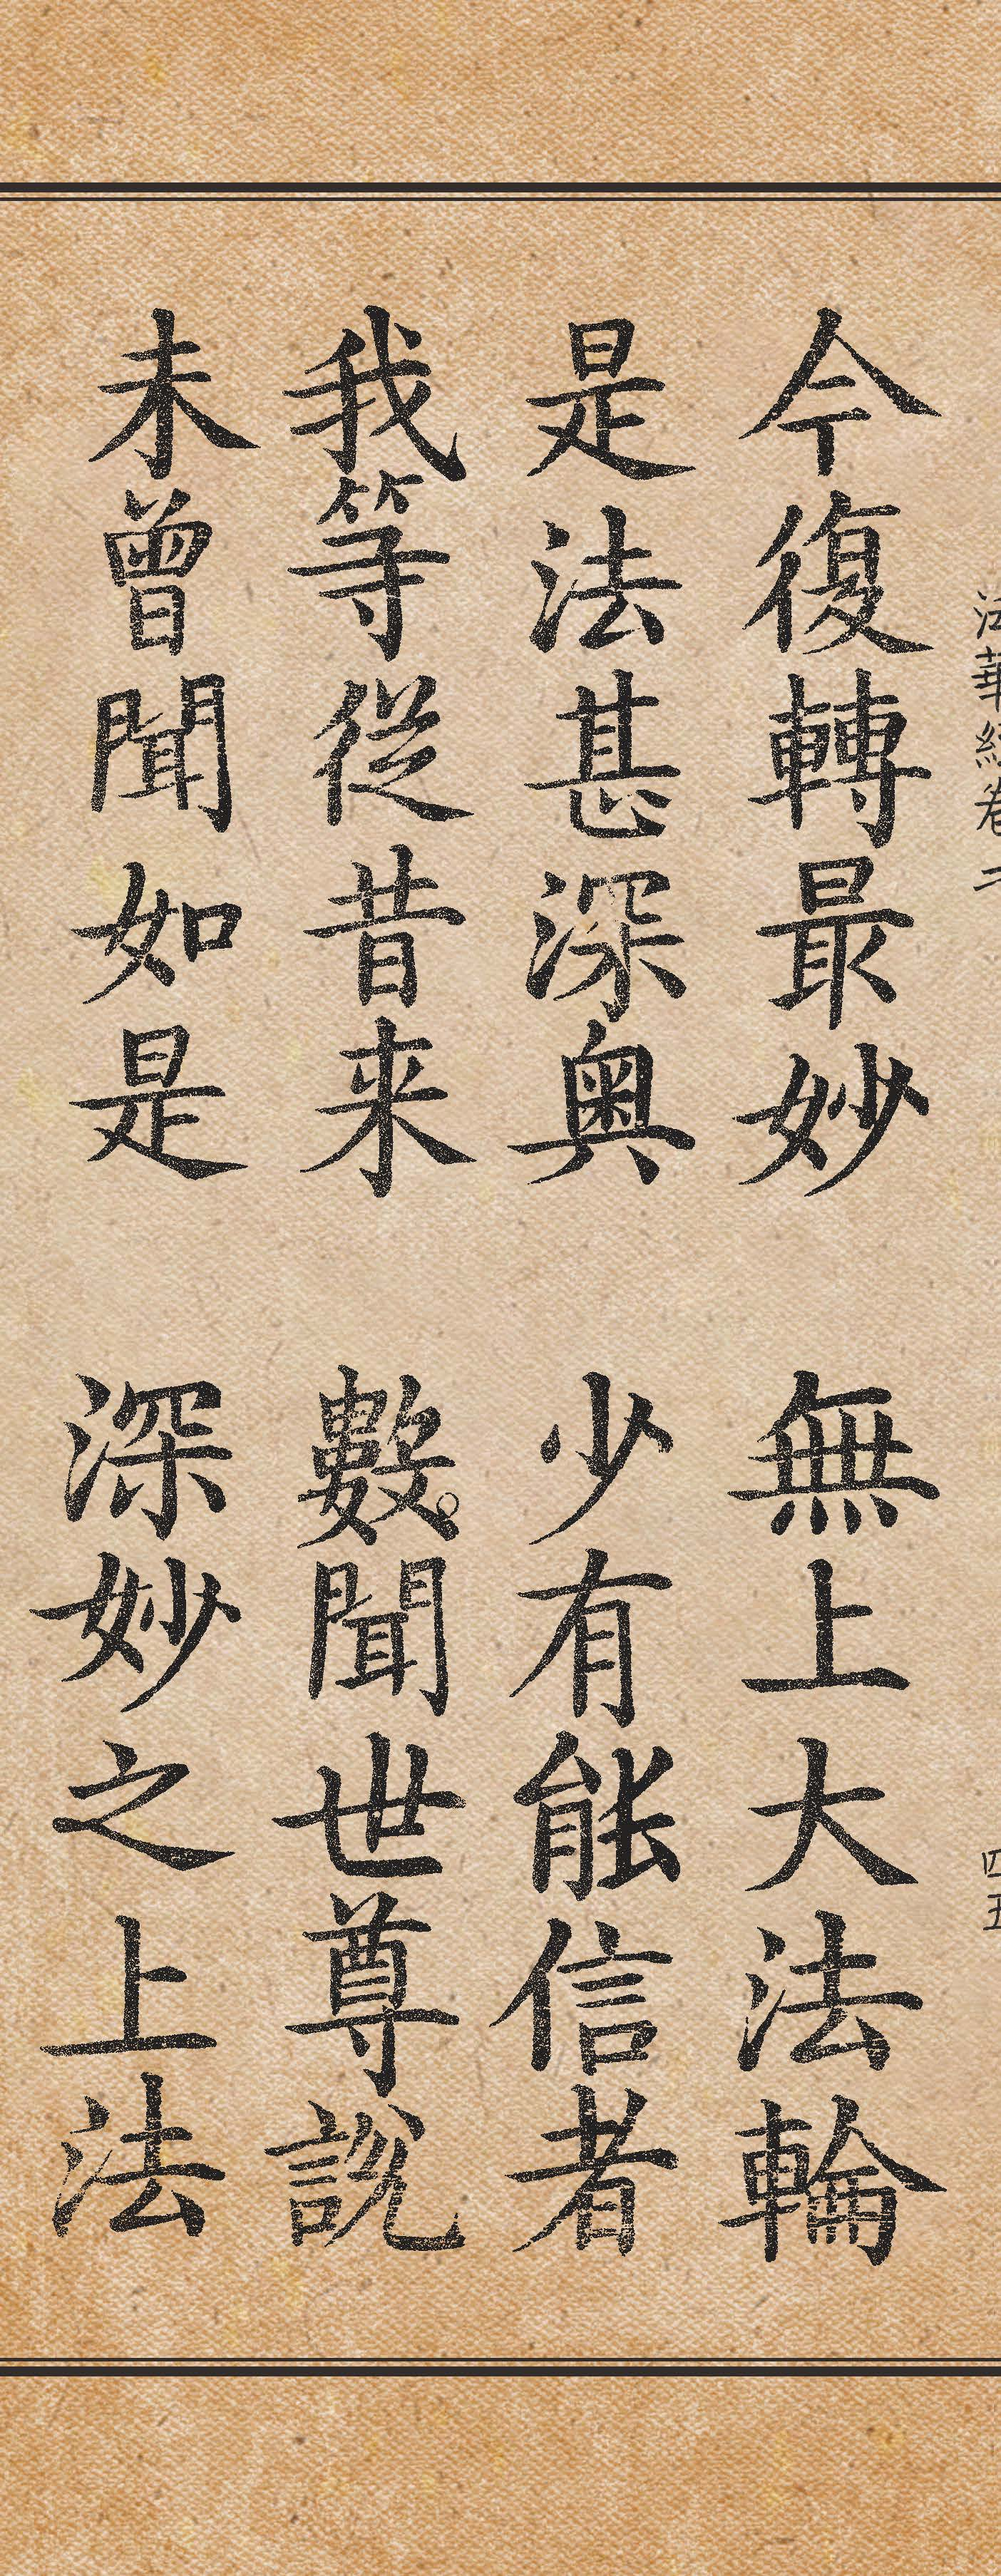 法華經卷二 四五
今復轉最妙 無上大法輪
是法甚深奧 少有能信者
我等從昔来 數聞世尊說
未曾聞如是 深妙之上法